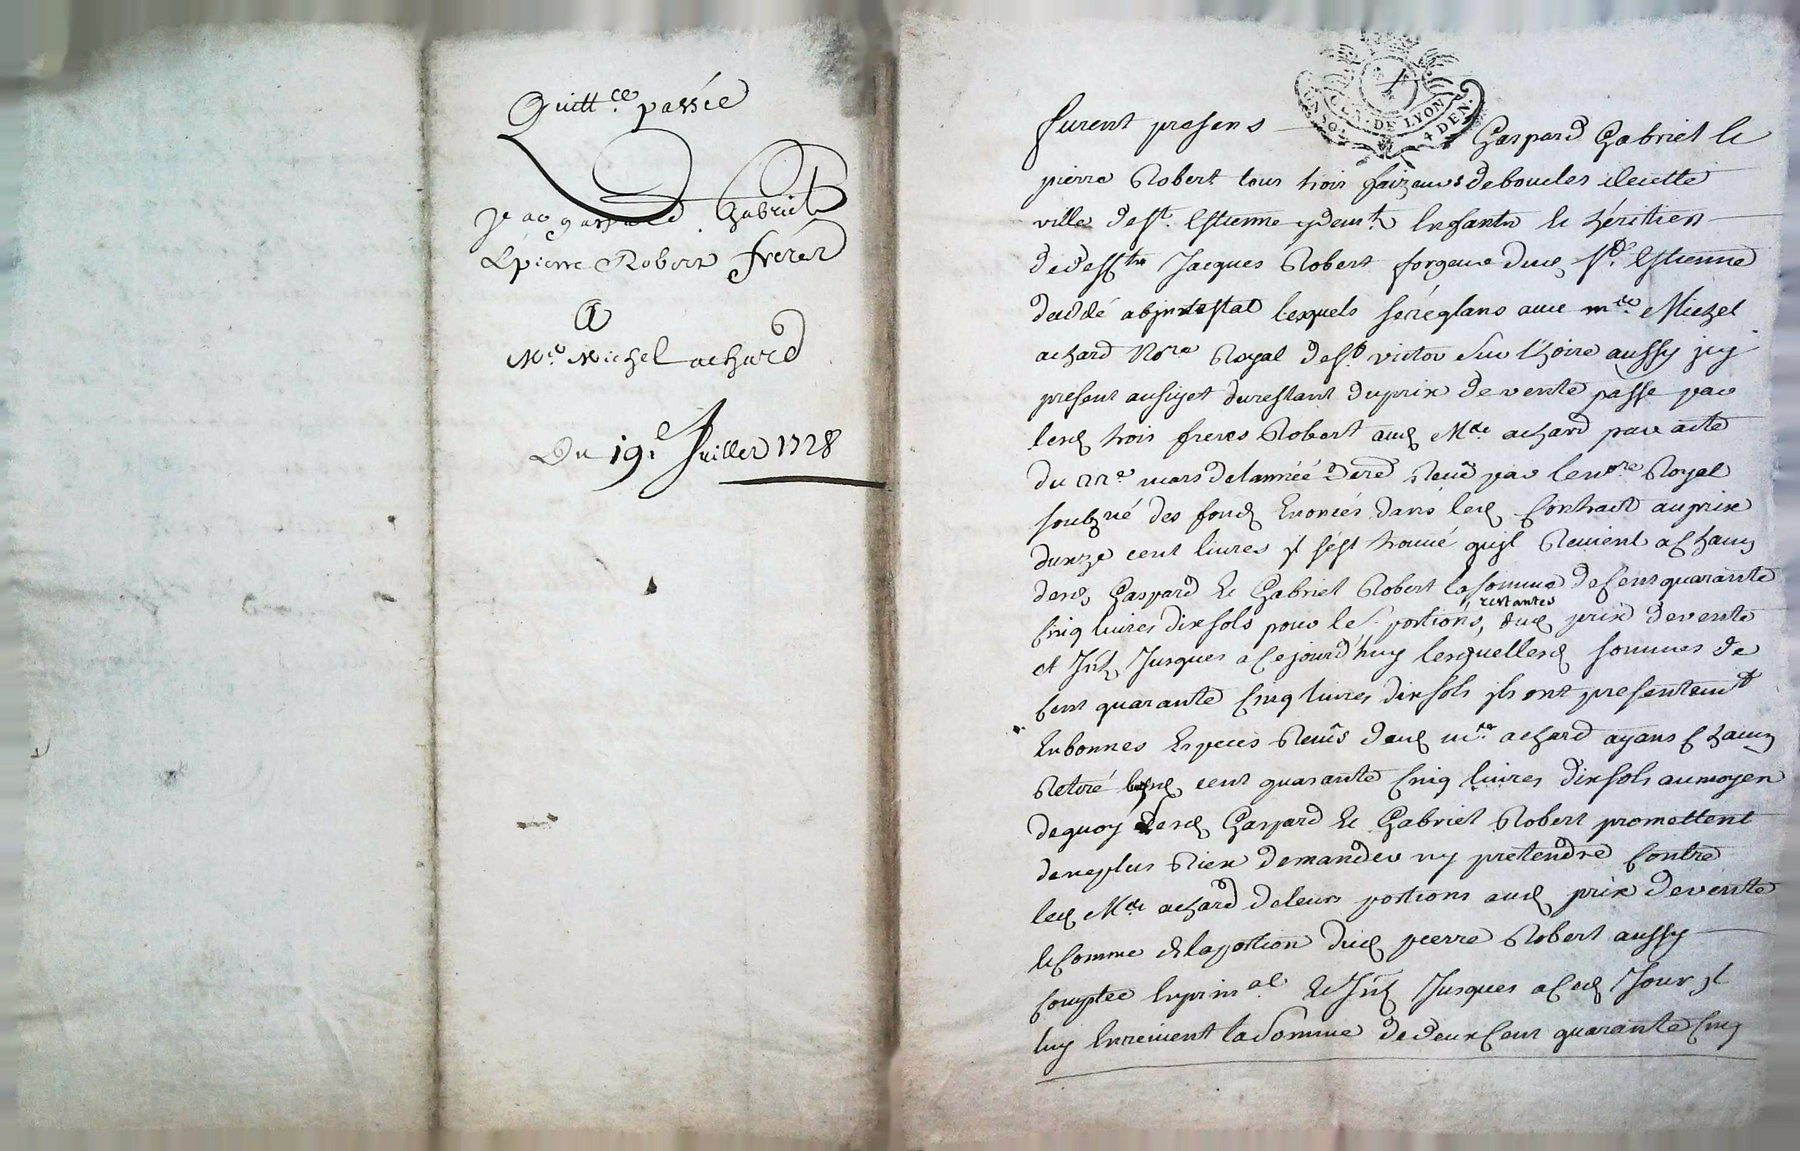 Quitt.ce passée
par gaspard Gabriel
& pierre Robert freres
A
Me Michel achard
Du 19e Juillet 1728
GEN. DE LYON
4 DEN.
furent presens Gaspard Gabriel &
pierre Robert tous trois faizeurs de boucles de cette
ville de st. Estienne Enfants & héritiers
de defft Jacques Robert forgeur dud. St. Estienne
décédé abjntestat lesquels se réglans avec me. Michel
achard Nore Royal de st victor sur Lhoire aussy icy
present au sujet du restant du prix de vente passé par
lesd trois freres Robert aud Me achard par acte
du mars de lannée Receu par le nore Royal
soubzné des fondz Enoncés dans led Contract au prix
dunze cent livres jl sest trouvé qujl Revient a Chacun
desd. Gaspard & Gabriel Robert la somme de Cent quarante
Cinq livres dix sols pour les portions restantes dud prix de vente
et Jnt Jusques a Cejourdhuy lesquelles sommes de
Cent quarante Cinq livres dix sols jls ont presentemt
En bonnes Especes Receus dud me achard ayans Chacun
Retiré cent quarante Cinq livres dix sols au moyen
de quoy lesd Gaspard & Gabriel Robert promettent
de ne plus Rien demander ny pretendre Contre
led Me achard de leurs portions aud prix de vente
& Comme de la portion dud pierre Robert aussy
Comptée En prin.al & Jnt Jusques a Ced Jour jl
luy En revient la Somme de deux Cent quarante Cinq